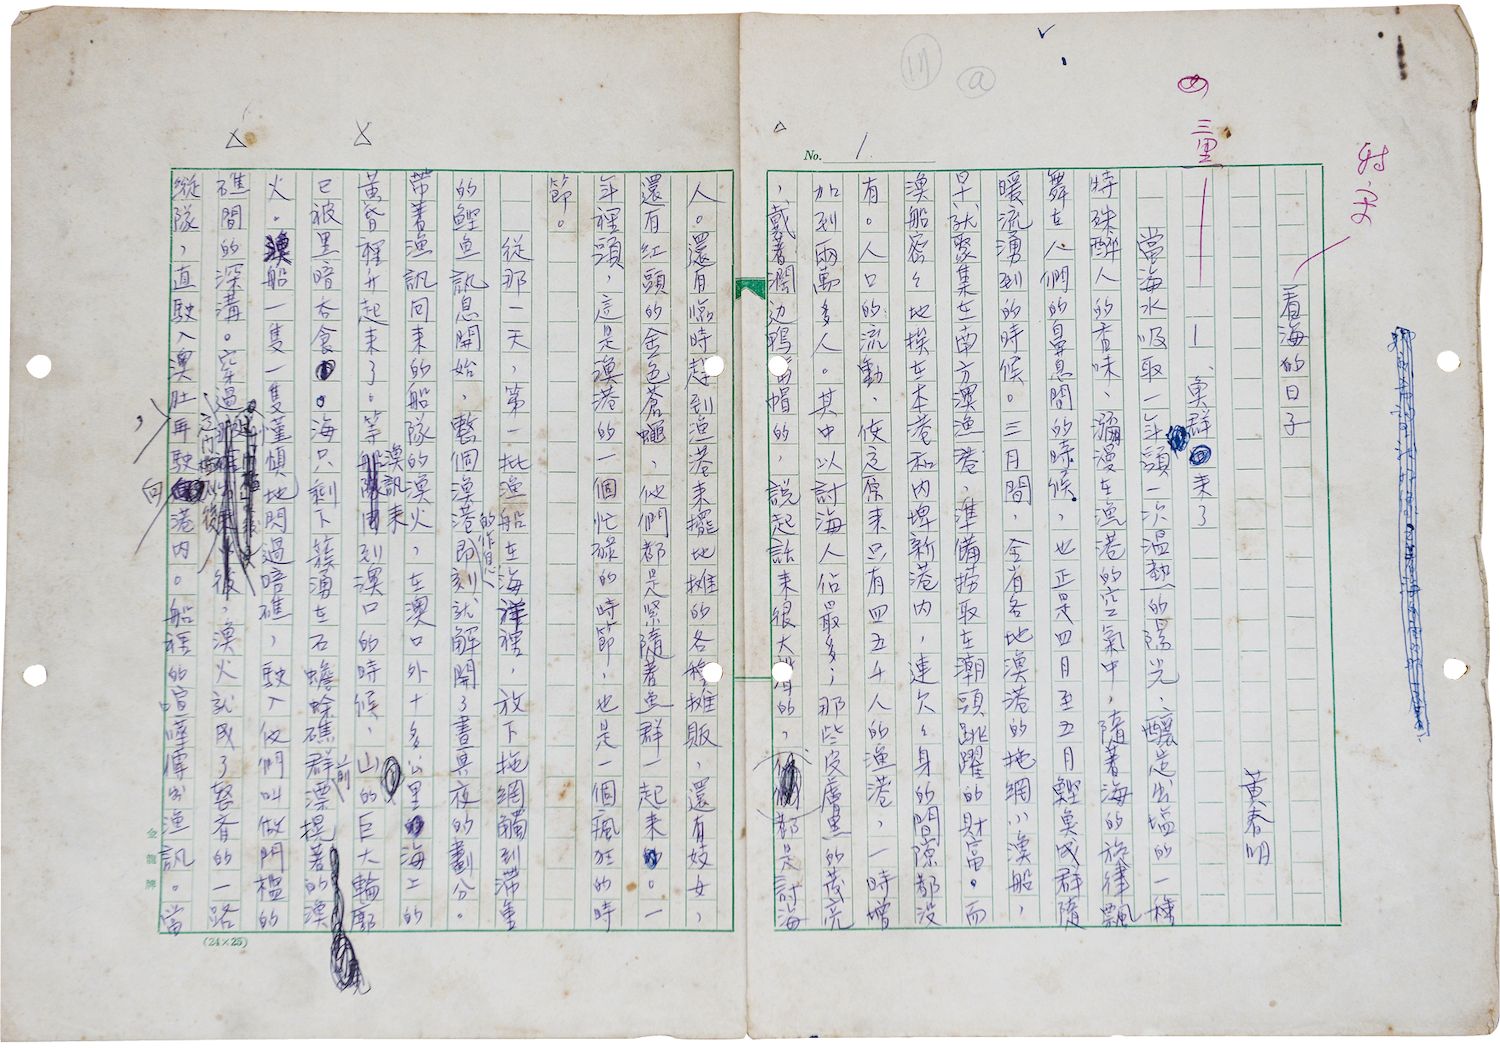 No. 1.
三黑
看海的日子
黃春明
魚群來了
當海水吸取一年頭一次溫熱的陽光、釀造出塩的一種
特殊醉人的香味、瀰漫在漁港的空氣中，隨著海的旋律飄
舞在人們的鼻息間的時候，也正是四月至五月鰹魚成群隨
暖流湧到的時候。三月間，全省各地漁港的拖網小漁船，
早就聚集在南方澳漁港，準備撈取在潮頭跳躍的財富。而
漁船密々地挨在本港和內埤新港內，連欠々身的間隙都沒
有。人口的流動，使定原來只有四五千人的漁港，一時增
加到兩萬多人。其中以討海人佔最多；那些皮膚黑的發亮
，戴著濶边鴨舌帽的，說起話來很大聲的，都是討海
人。還有臨時趕到漁港來擺地攤的各種攤販，還有妓女，
還有紅頭的金色蒼蠅，他們都是緊隨著魚群一起來。一
年裡頭，這是漁港的一個忙碌的時節，也是一個瘋狂的時
節。
從那一天，第一批漁船在海洋裡，放下拖網觸到滯重
的鰹魚訊息開始，整個漁港的作息即刻就解開了晝與夜的劃分。
帶著漁訊回來的船隊的漁火，在澳口外十多公里海上的
黃昏裡升起來了。等漁訊來到澳口的時候，山的巨大輪廓
已被黑暗吞食。海只剩下簇湧在石蟾蜍礁群前漂提著的漁
火。漁船一隻一隻謹慎地閃過暗礁，駛入他們叫做門檻的
礁間的深溝。穿過後，漁火就成了整齊的一路
縱隊，直駛入澳肚再駛向港內。船裡的喧嘩傳出漁訊。當
金龍牌
(24×25)